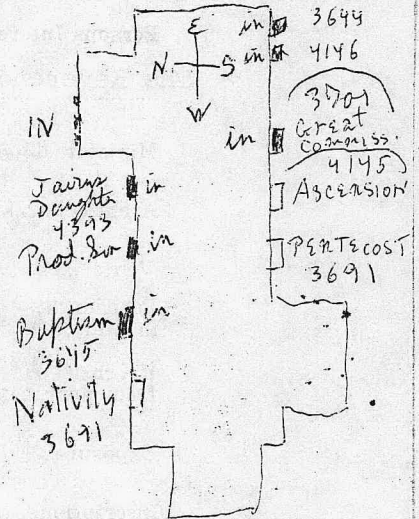 E
N S
W
in 3644
in 4146
3701
in Great
Commiss.
4145
ASCENSION
PENTECOST
3691
IN
Jairus in
Daughter
4393
Prod. Son in
Baptism in
3645
Nativity
3691